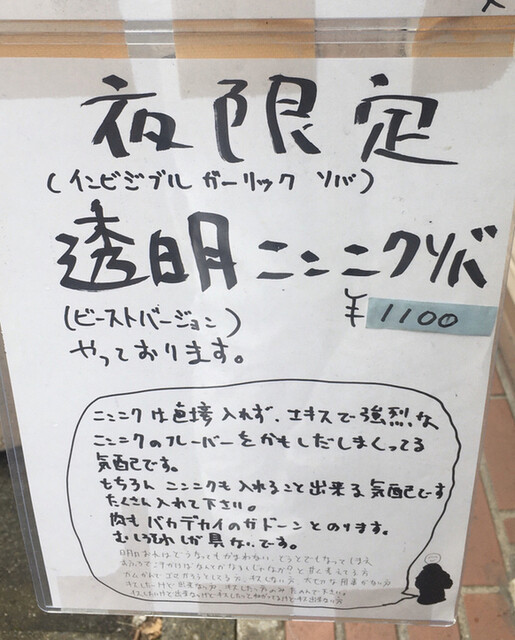 夜限定
(インビジブル ガーリック ソバ)
透明ニンニクソバ
(ビーストバージョン)
¥1100
やっております。
ニンニクは直接入れず、エキスで強烈な
ニンニクのフレーバーをかもしだしまくってる
気配です。
もちろん ニンニクも入れること出来る気配です
たくさん入れて下さい。
肉もバカデカイのがドーンとのります。
むしろそれしか具ないです。
明日おれはどうなってもかまわない、